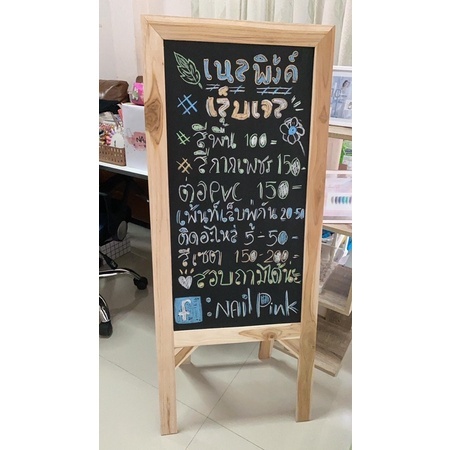 เนลพิงค์
เร็บเจล
สีพื้น 100=
สีกากเพชร 150-
ต่อPVC 150=
เพ้นท์เล็บพู่กัน 20-50
ติดอะไหล่ 5-50-
สีเซต 150-200=
สอบถามได้นะ
f : NAil Pink